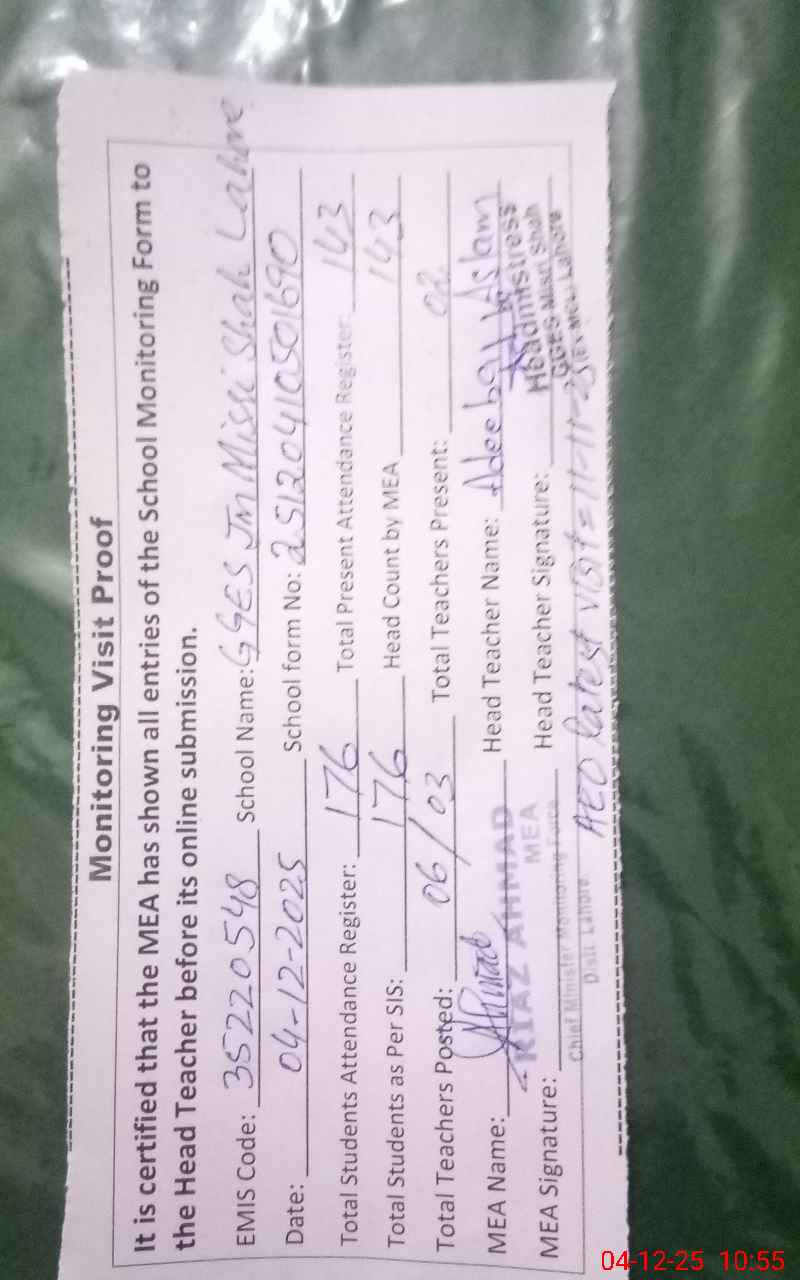 Monitoring Visit Proof
It is certified that the MEA has shown all entries of the School Monitoring Form to
the Head Teacher before its online submission.
EMIS Code: 35220548 School Name: GGES JM Missi Shah Lahore
Date: 04-12-2025 School form No: 25120410501690
Total Students Attendance Register: 176 Total Present Attendance Register: 143
Total Students as Per SIS: 176 Head Count by MEA 143
Total Teachers Posted: 06/03 Total Teachers Present: 02
MEA Name: RIAZ AHMAD Head Teacher Name: Adeeba Aslam
MEA
MEA Signature: Head Teacher Signature: Headmistress
Chief Minister Monitoring Force GGES Missi Shah
Distt. Lahore (Ex MCL) Lahore
AEO latest visit = 11-11-25
04-12-25 10:55